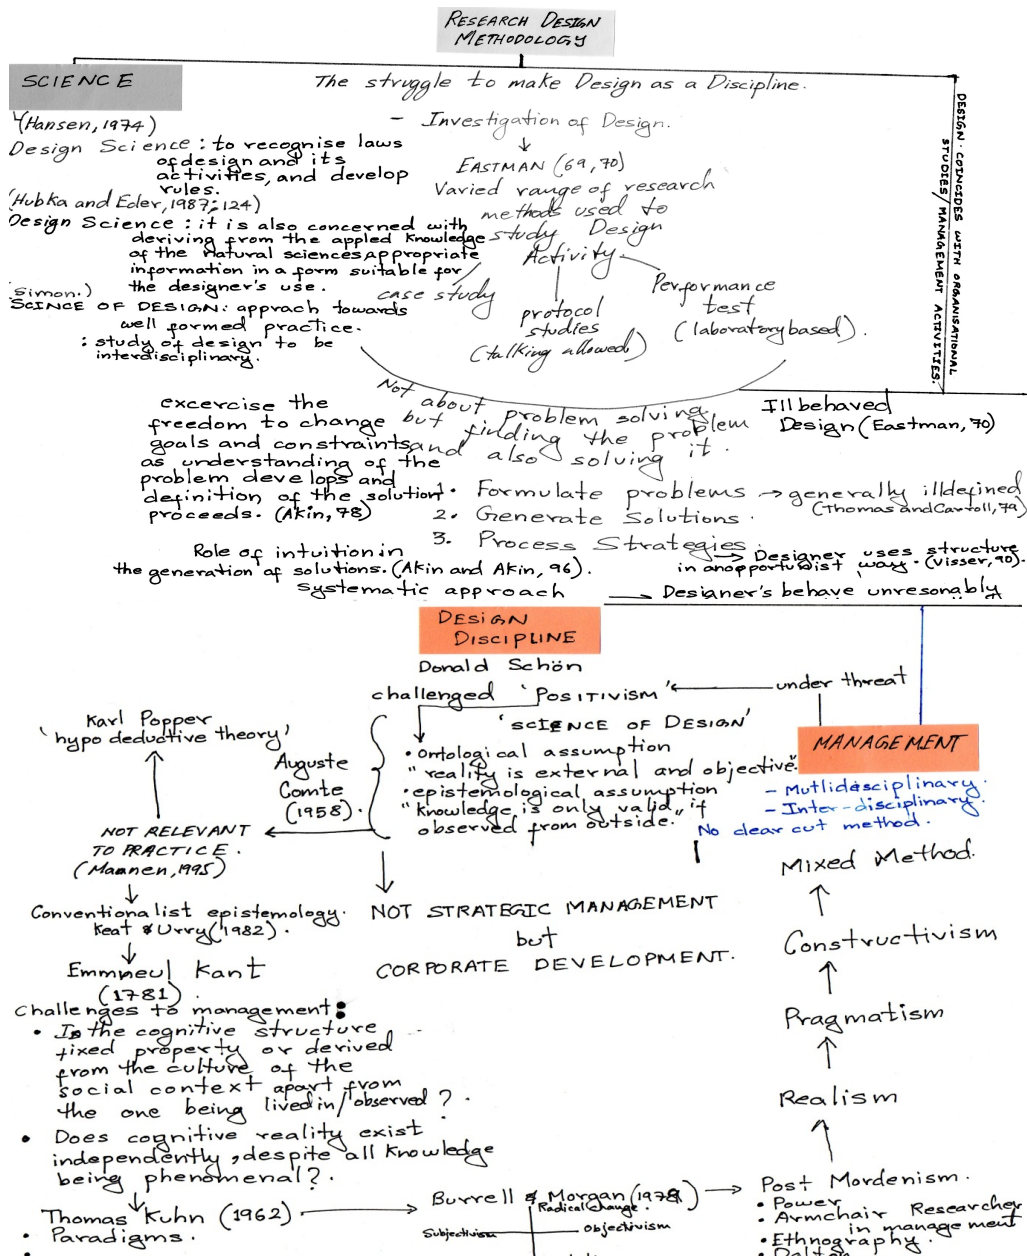 RESEARCH DESIGN
METHODOLOGY
SCIENCE
The struggle to make Design as a Discipline.
(Hansen, 1974)
Design Science : to recognise laws
of design and its
activities, and develop
rules.
(Hubka and Eder, 1987; 124)
Design Science : it is also concerned with
deriving from the appled knowledge
of the natural sciences appropriate
information in a form suitable for
the designer's use.
(Simon.)
SCINCE OF DESIGN: apprach towards
well formed practice.
: study of design to be
interdisciplinary.
- Investigation of Design.
EASTMAN (69, 70)
Varied range of research
methods used to
study Design
Activity.
case study
protocol
studies
(talking allowed)
Performance
test
(laboratory based).
DESIGN. COINCIDES WITH ORGANISATIONAL
STUDIES/MANAGEMENT ACTIVITIES.
Not about problem solving
but finding the problem
and also solving it.
Ill behaved
Design (Eastman, 70)
excercise the
freedom to change
goals and constraints
as understanding of the
problem develops and
definition of the solution
proceeds. (Akin, 78)
1. Formulate problems → generally illdefined
(Thomas and Carroll, 79)
2. Generate Solutions.
3. Process Strategies.
→ Designer uses structure
in an opportunist way. (Visser, 90).
Role of intuition in
the generation of solutions. (Akin and Akin, 96).
Systematic approach → Designer's behave unresonably
DESIGN
DISCIPLINE
Donald Schön
challenged 'POSITIVISM' ← under threat
'SCIENCE OF DESIGN'
• Ontological assumption
"reality is external and objective".
• epistemological assumption
"Knowledge is only valid, if
observed from outside."
MANAGEMENT
- Mutlidisciplinary.
- Inter-disciplinary.
No clear cut method.
Karl Popper
'hypo deductive theory'
Auguste
Comte
(1958).
NOT RELEVANT
TO PRACTICE.
(Maanen, 1995)
Conventionalist epistemology.
Keat & Urry (1982).
Emmneul Kant
(1781).
NOT STRATEGIC MANAGEMENT
but
CORPORATE DEVELOPMENT.
Mixed Method.
Constructivism
Pragmatism
Realism
Challenges to management:
• Is the cognitive structure
fixed property or derived
from the culture of the
social context apart from
the one being lived in/observed?.
• Does cognitive reality exist
independently, despite all knowledge
being phenomenal?.
Thomas Kuhn (1962)
• Paradigms.
Burrell & Morgan
Radical Change.
Subjectivism
Objectivism
Post Mordenism.
• Power
• Armchair Researcher
in management
• Ethnography.
• Dalton